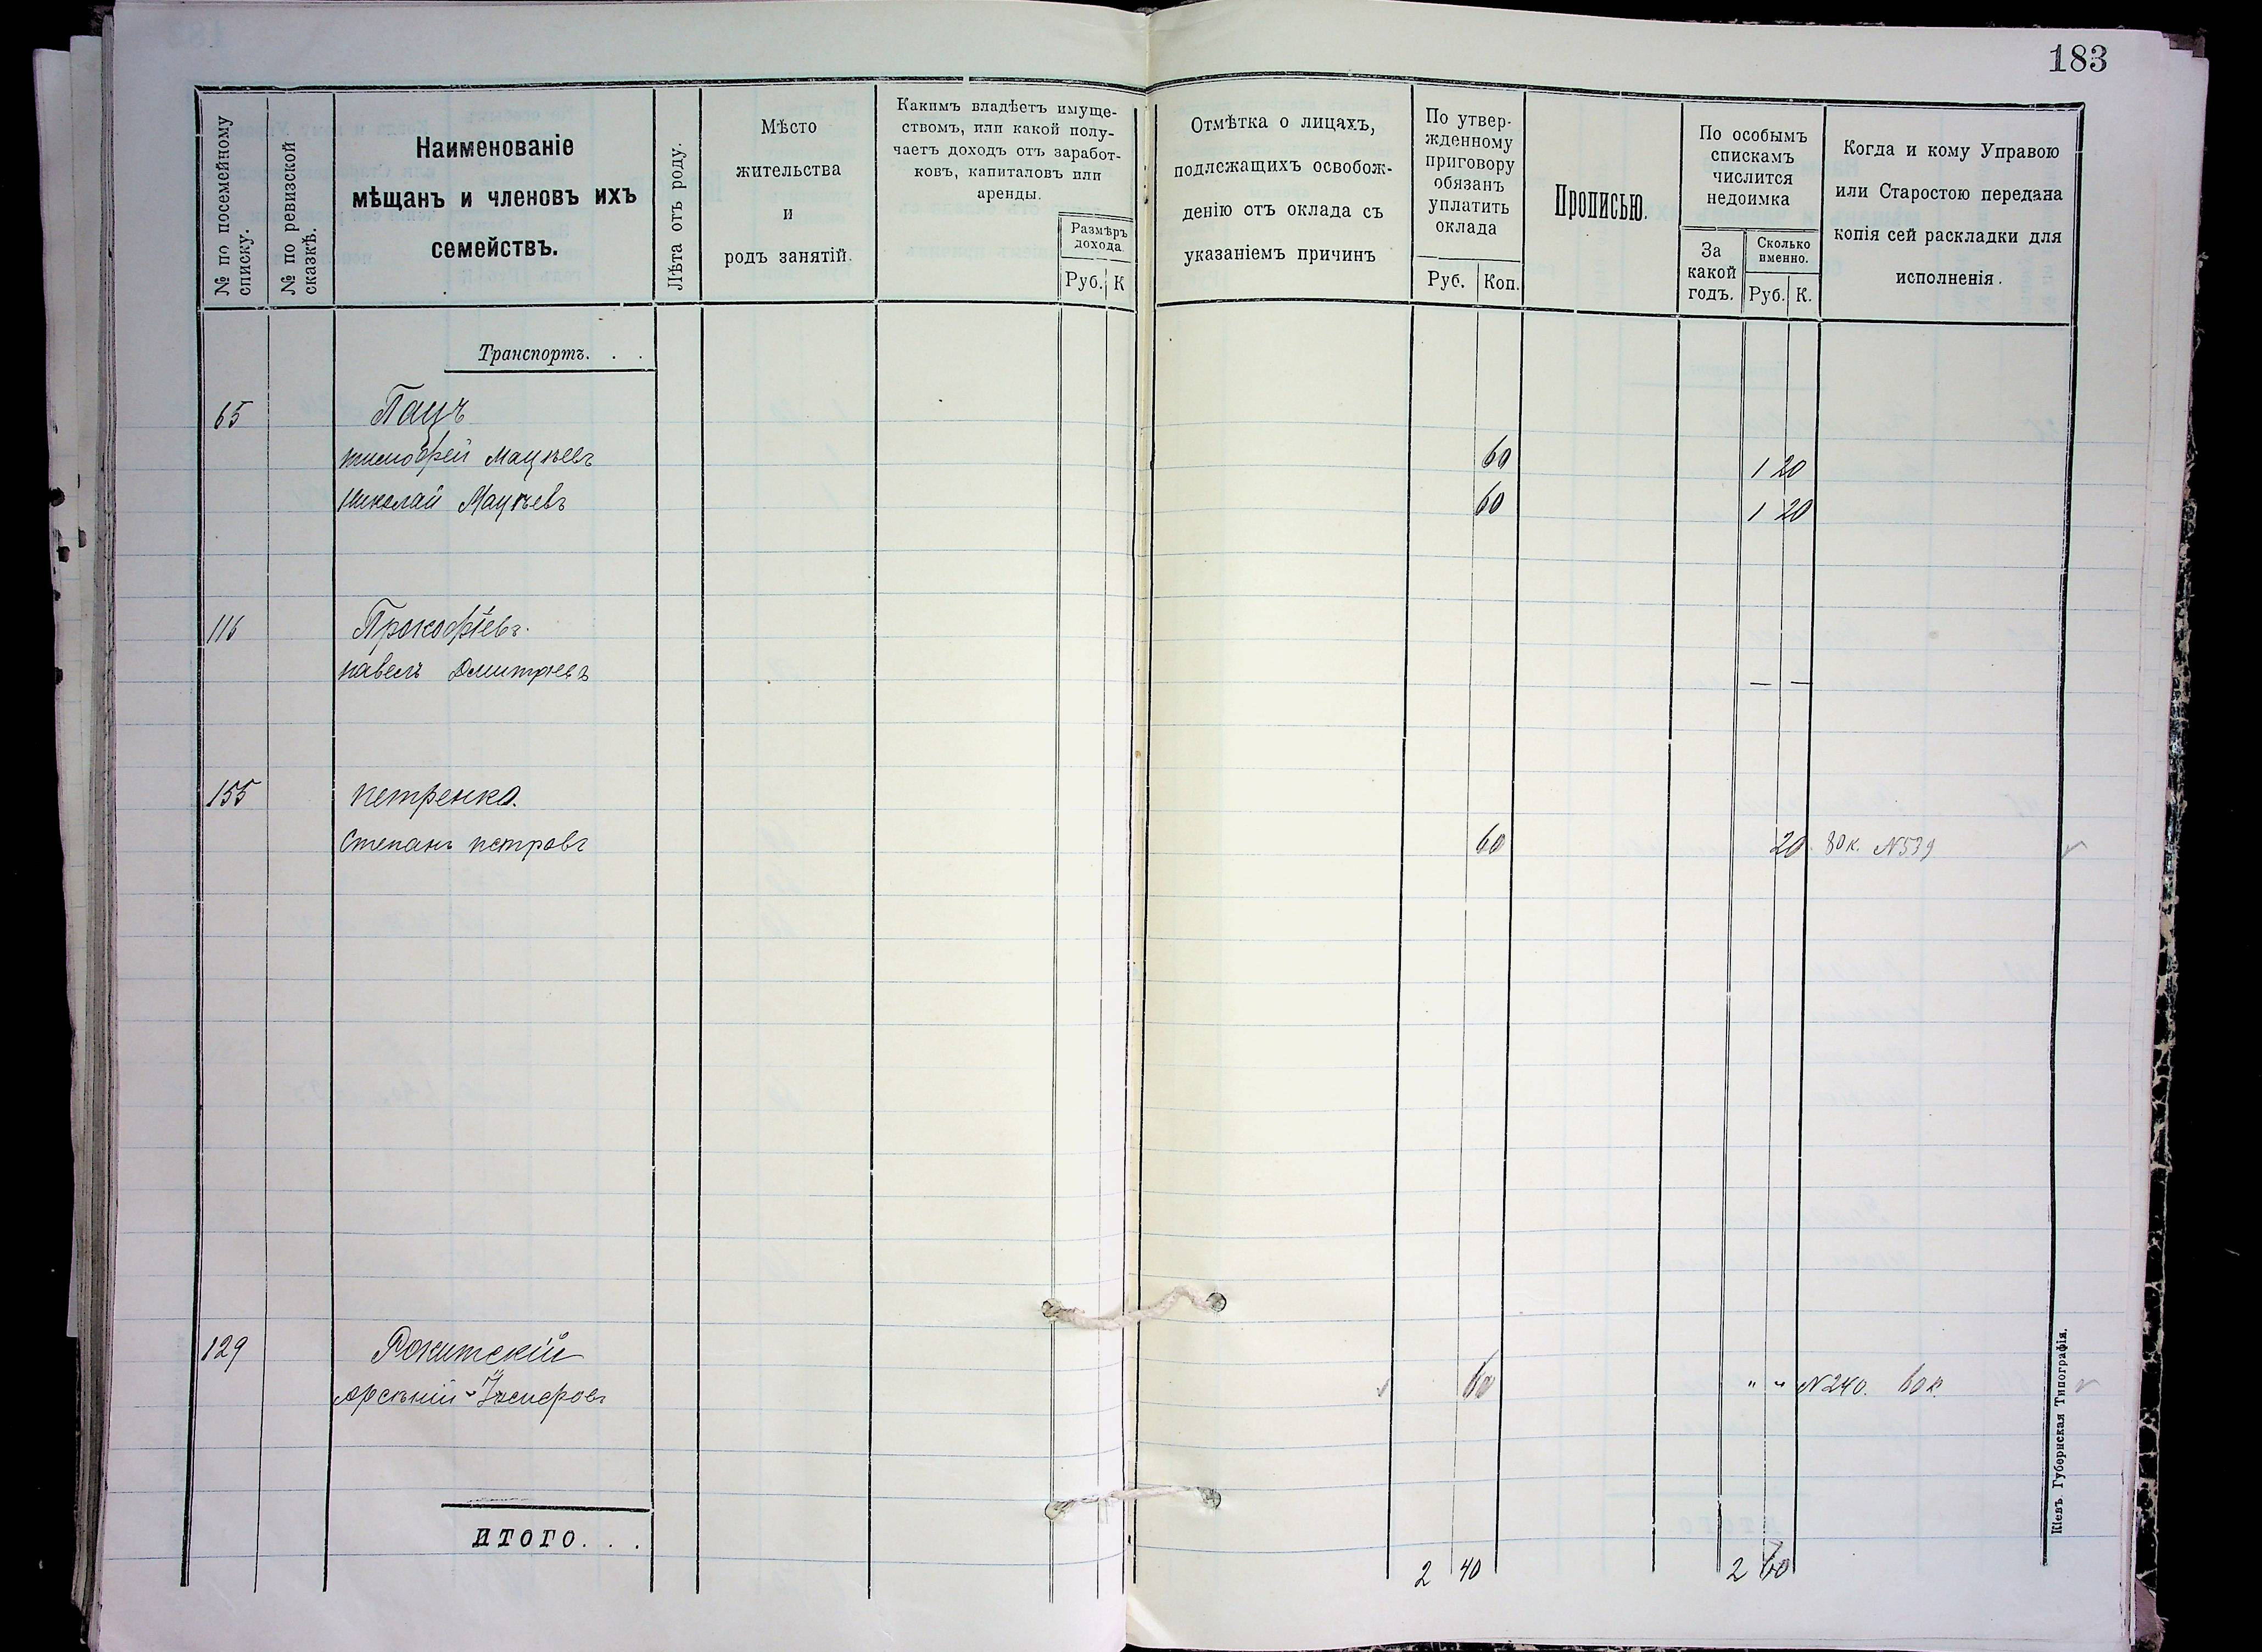 183
№ по посемейному списку.
№ по ревизской сказкѣ.
Наименованіе
мѣщанъ и членовъ ихъ
семействъ.
Лѣта отъ роду.
Мѣсто
жительства
и
родъ занятій.
Какимъ владѣетъ имуще-
ствомъ, или какой полу-
чаетъ доходъ отъ заработ-
ковъ, капиталовъ или
аренды.
Размѣръ
дохода
Руб. К
Отмѣтка о лицахъ,
подлежащихъ освобож-
денію отъ оклада съ
указаніемъ причинъ
По утвер-
жденному
приговору
обязанъ
уплатить
оклада
Руб. Коп.
Прописью.
По особымъ
спискамъ
числится
недоимка
За
какой
годъ.
Сколько
именно.
Руб. К.
Когда и кому Управою
или Старостою передана
копія сей раскладки для
исполненія.
Транспортъ. . .
65 Пацъ
тимофей Мацѣевъ 60 1 20
николай Мацѣевъ 60 1 20
116 Прокофіевъ.
павелъ Дмитріевъ — —
155 петренко.
Степанъ петровъ 60 20 80к. N539
129 Рокитскій
Арсѣній 60 " " N240. 60к.
ИТОГО. . .
2 40 2 60
Кіевъ. Губернская Типографія.